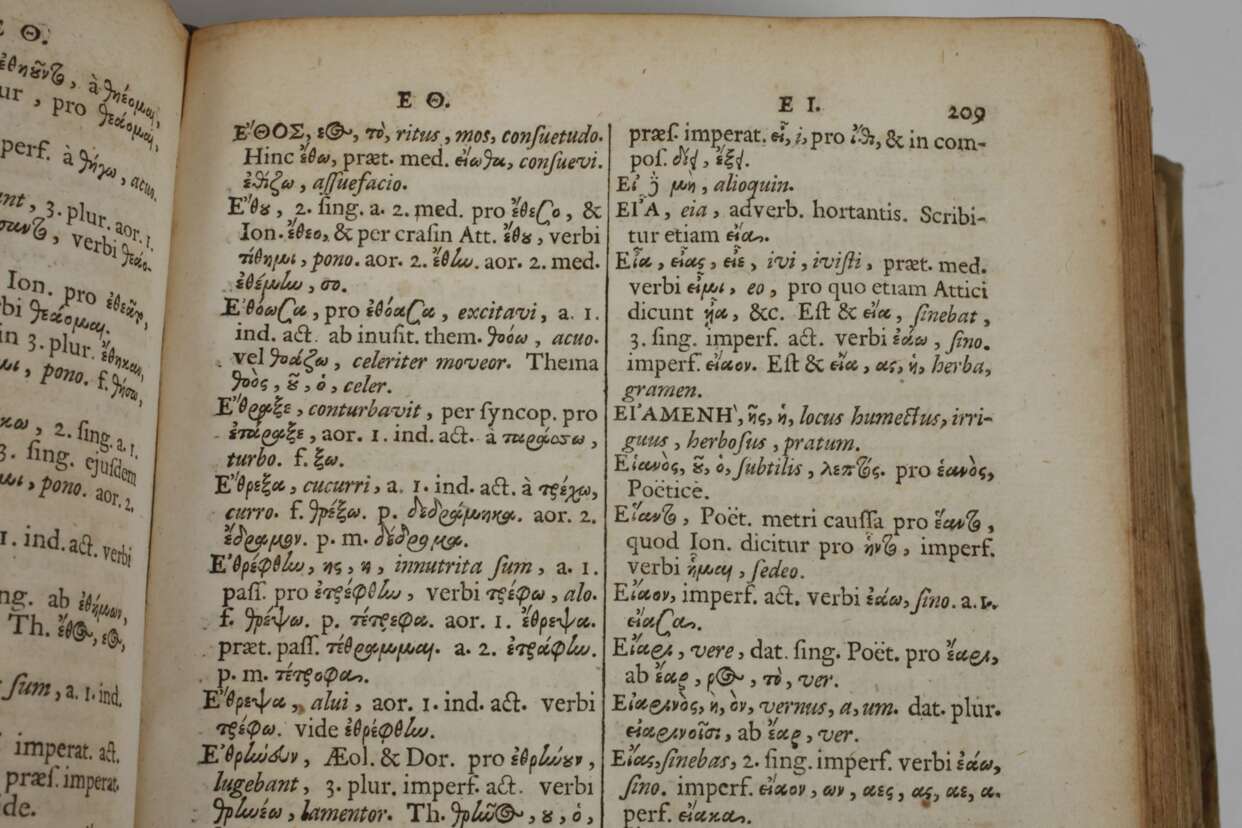 Ε Θ.
ἐθηοῦντο, à θηέομαι,
ur, pro θεάομαι,
perf. à θήγω, acuo.
nt, 3. plur. aor. 1.
σαντο, verbi θεάο-
Ion. pro ἐθεᾶτο,
rbi θεάομαι.
in 3. plur. ἔθηκαν,
μι, pono. f. θήσω,
κω, 2. sing. a. 1.
3. sing. ejuſdem
μι, pono. aor. 2.
1. ind. act. verbi
ng. ab ἐθήμων,
Th. ἔθος, εος,
ſum, a. 1. ind.
imperat. act.
præſ. imperat.
ide.
Ε Θ.
ἘΘΟΣ, εος, τὸ, ritus, mos, conſuetudo.
Hinc ἔθω, præt. med. εἴωθα, conſuevi.
ἐθίζω, aſſuefacio.
Ἔθου, 2. ſing. a. 2. med. pro ἔθεσο, &
Ion. ἔθεο, & per craſin Att. ἔθου, verbi
τίθημι, pono. aor. 2. ἔθην. aor. 2. med.
ἐθέμην, σο.
Ἐθόωσα, pro ἐθόασα, excitavi, a. 1.
ind. act. ab inuſit. them. θοόω, acuo.
vel θοάζω, celeriter moveor. Thema
θοὸς, οῦ, ὁ, celer.
Ἔθραξε, conturbavit, per ſyncop. pro
ἐτάραξε, aor. 1. ind. act. à ταράσσω,
turbo. f. ξω.
Ἔθρεξα, cucurri, a. 1. ind. act. à τρέχω,
curro. f. θρέξω. p. δεδράμηκα. aor. 2.
ἔδραμον. p. m. δέδρομα.
Ἐθρέφθην, ης, η, innutrita ſum, a. 1.
paſſ. pro ἐτρέφθην, verbi τρέφω, alo.
f. θρέψω. p. τέτρεφα. aor. 1. ἔθρεψα.
præt. paſſ. τέθραμμαι. a. 2. ἐτράφην.
p. m. τέτροφα.
Ἔθρεψα, alui, aor. 1. ind. act. verbi
τρέφω. vide ἐθρέφθην.
Ἐθρήνευν, Æol. & Dor. pro ἐθρήνουν,
lugebant, 3. plur. imperf. act. verbi
θρηνέω, lamentor. Th. θρῆνος, ου, ὁ,
Ε Ι. 209
præſ. imperat. εἶ, i, pro ἴθι, & in com-
poſ. δίει, ἔξει.
Εἰ δὲ μὴ, alioquin.
ΕΙ᾿Α, eia, adverb. hortantis. Scribi-
tur etiam εἶα.
Εἶα, εἶας, εἶε, ivi, iviſti, præt. med.
verbi εἶμι, eo, pro quo etiam Attici
dicunt ᾖα, &c. Eſt & εἴα, ſinebat,
3. ſing. imperf. act. verbi ἐάω, ſino.
imperf. εἴαον. Eſt & εἴα, ας, ἡ, herba,
gramen.
ΕΙ᾿ΑΜΕΝΗ᾿, ῆς, ἡ, locus humectus, irri-
guus, herboſus, pratum.
Εἱανὸς, οῦ, ὁ, ſubtilis, λεπτός. pro ἑανὸς,
Poëticè.
Εἵαντο, Poët. metri cauſſa pro ἕαντο,
quod Ion. dicitur pro ἧντο, imperf.
verbi ἧμαι, ſedeo.
Εἴαον, imperf. act. verbi ἐάω, ſino. a. 1.
εἴασα.
Εἴαρι, vere, dat. ſing. Poët. pro ἔαρι,
ab ἔαρ, ρος, τὸ, ver.
Εἰαρινὸς, ὴ, ὸν, vernus, a, um. dat. plur.
εἰαρινοῖσι, ab ἔαρ, ver.
Εἴας, ſinebas, 2. ſing. imperf. verbi ἐάω,
ſino. imperf. εἴαον, ων, αες, ας, αε, α.
perf. εἴακα.